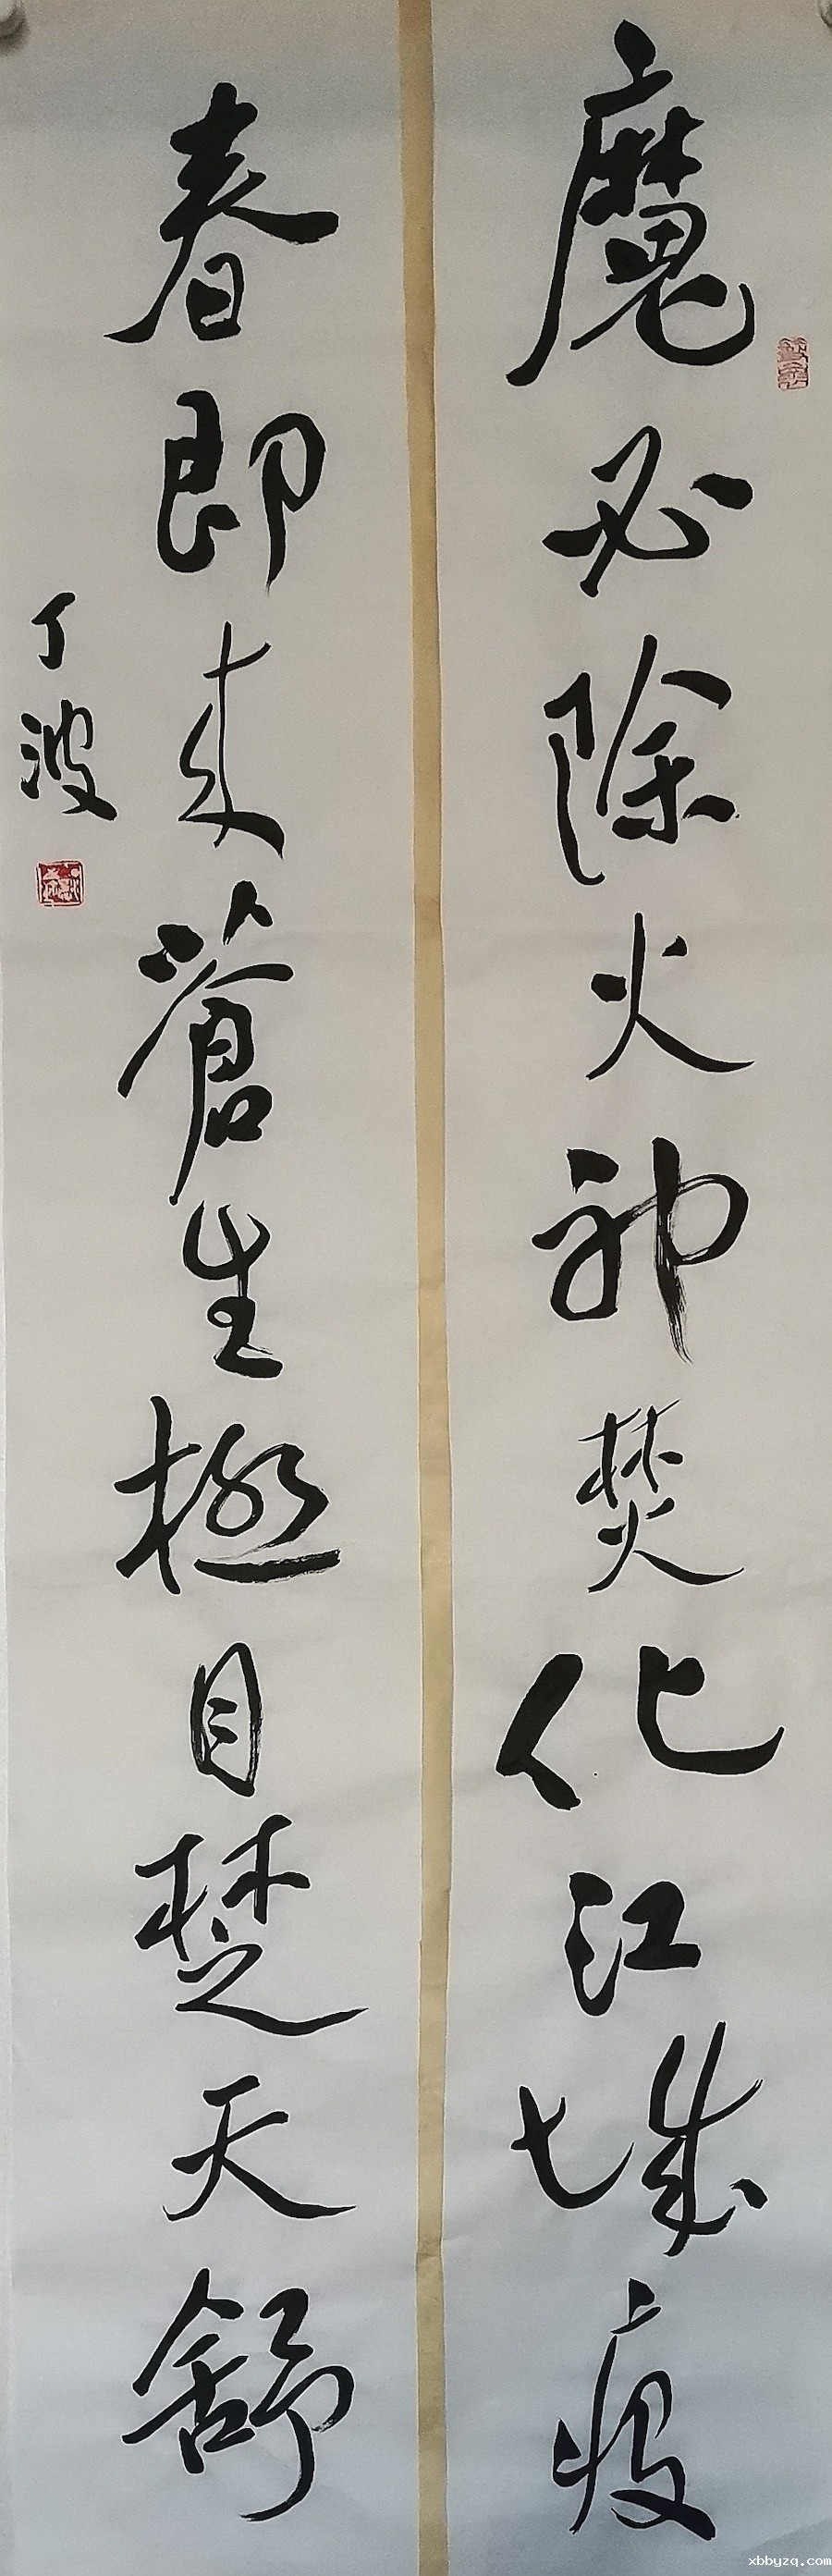 魔必除火神焚化江城疫
春即来蒼生極目楚天舒
丁波
xbbyzq.com